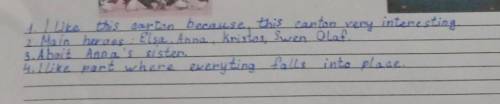 1. I like this carton because, this carton very interesting.
2. Main heroes: Elsa, Anna, Kristos, Swen Olaf.
3. About Anna's sister.
4. I like part where everyting falls into place.